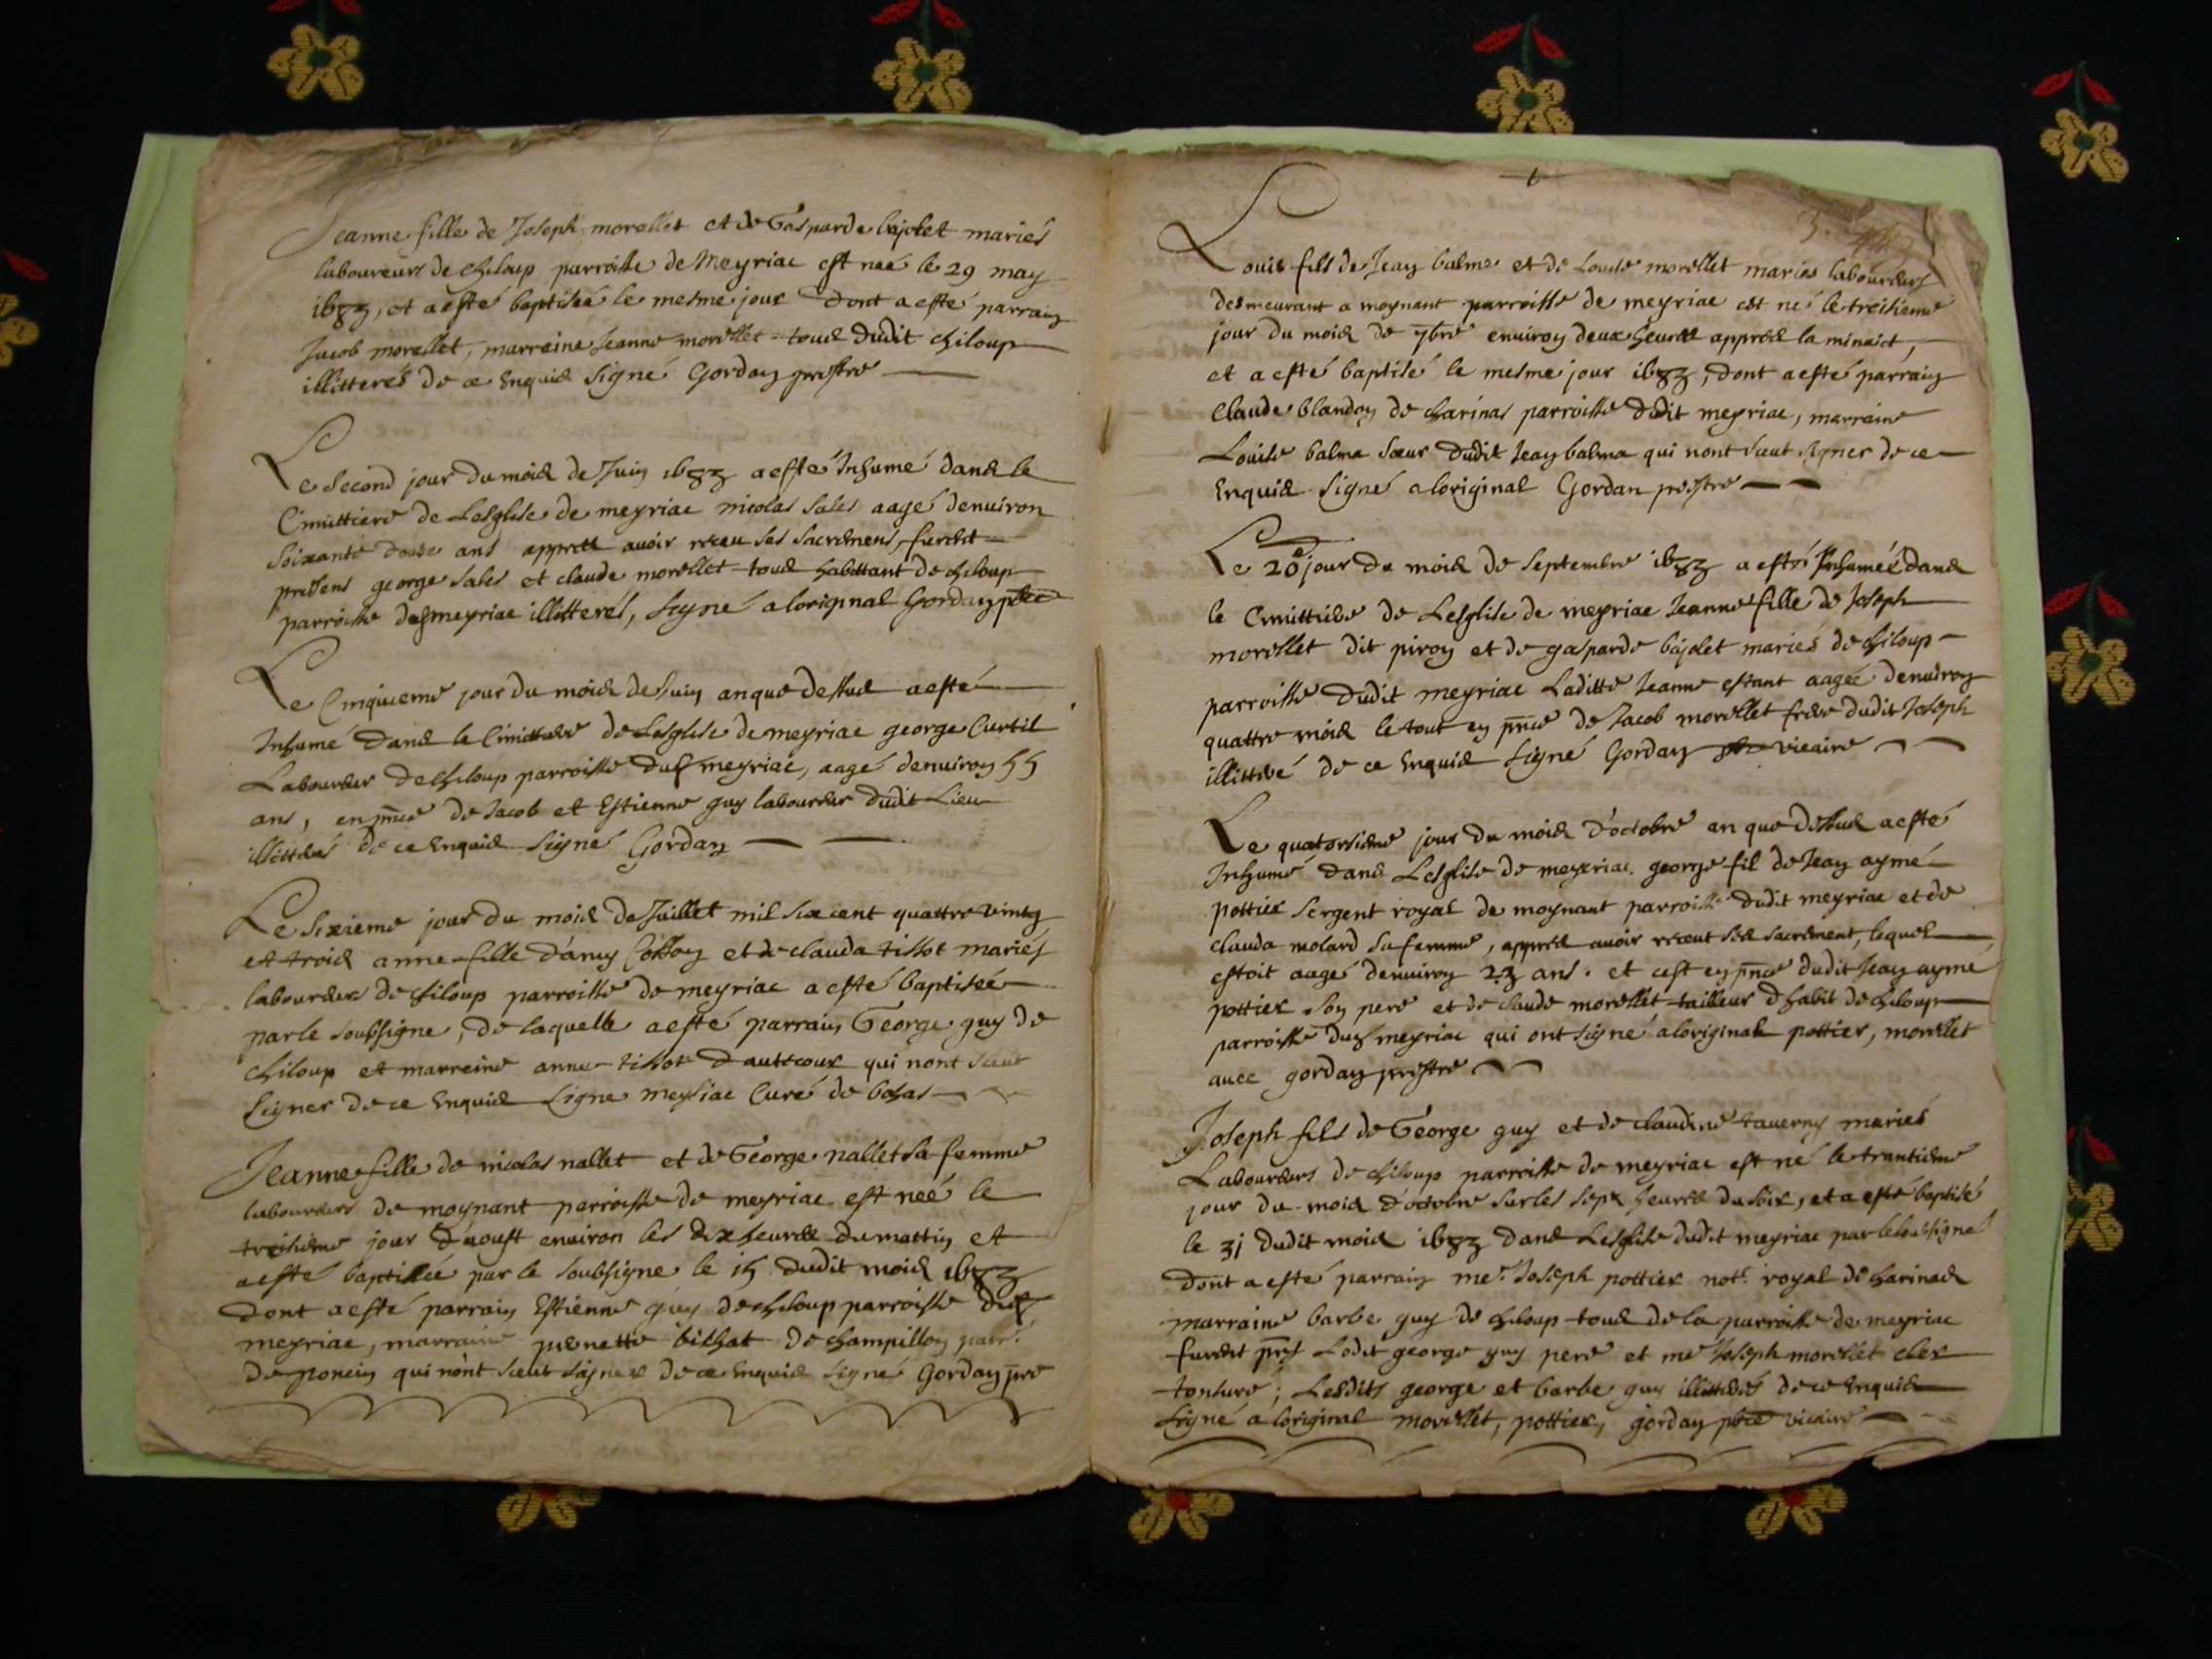 Jeanne fille de Joseph morellet et de Gasparde bajolet mariés
laboureurs de chiloup parroisse de Meyriac est neé le 29 may
1683, et a esté baptiseé le mesme jour dont a esté parrain
Jacob morellet, marreine Jeanne morellet tous dudit chiloup
illitterés de ce Enquis signé Gordan prestre
Le second jour du mois de Juin 1683 a esté Inhumé dans le
Cimittiere de Lesglise de meyriac nicolas sales aagé denuiron
soixante douse ans appres auoir receu ses sacremens, furent
presens george sales et claude morellet tous habittant de chiloup
parroisse dud meyriac illitterés, signé a loriginal Gordan pbre
Le Cinquieme jour du mois de Juin an que dessus a esté
Inhumé dans le Cimittiere de Lesglise de meyriac george Curtil
Laboureur de chiloup parroisse dud meyriac, aagé denuiron 55
ans, en pnce de Jacob et Estienne guy laboureur dudit Lieu
illitterés de ce Enquis signé Gordan
Le sixieme jour du mois de Juillet mil six cent quattre vintg
et trois anne fille d'amy et de clauda tissot mariés
laboureurs de chiloup parroisse de meyriac a esté baptiseé
par le soubsigne, de laquelle a esté parrain George guy de
chiloup et marreine anne tissot d'auttcour qui nont sceut
signer de ce Enquis signe meysiac Curé de bohas
Jeanne fille de nicolas nallet et de George nallet sa femme
laboureurs de moynant parroisse de meyriac est neé le
treisieme jour d'aoust enuiron les dix heures du mattin et
a esté baptiseé par le soubsigne le 15 dudit mois 1683
dont a esté parrain Estienne guy de chiloup parroisse dud
meyriac, marraine pernette bithat de champillon parr.
de poncin qui nont sceut signer de ce enquis signé Gordan pre
3.
Louis fils de Jean balme et de Louise morellet mariés laboureurs
desmeurant a moynant parroisse de meyriac est né le treisieme
jour du mois de 7bre enuiron deux heures appres la minuict,
et a esté baptisé le mesme jour 1683, dont a esté parrain
Claude blandon de charinas parroisse dudit meyriac, marraine
Louise balma sœur dudit Jean balma qui nont sceut signer de ce
Enquis signé a loriginal Gordan prestre
Le 20e jour du mois de septembre 1683 a esté Inhumeé dans
le Cimittiere de Lesglise de meyriac Jeanne fille de Joseph
morellet dit piron et de gasparde bajolet mariés de chiloup
parroisse dudit meyriac Laditte Jeanne estant aageé denuiron
quattre mois le tout en pnce de Jacob morellet frere dudit Joseph
illitteré de ce Enquis signé Gordan vicaire
Le quatorsieme jour du mois d'octobre an que dessus a esté
Inhumé dans Lesglise de meyriac george fil de Jean aymé
pottier sergent royal de moynant parroisse dudit meyriac et de
clauda molard sa femme, appres auoir receut ses sacrement, lequel
estoit aagé denuiron 23 ans. et cest en pnce dudit Jean aymé
pottier son pere et de claude morellet tailleur d'habit de chiloup
parroisse dud meyriac qui ont signé a loriginal pottier, morellet
auec gordan prestre
Joseph fils de George guy et de claudine tauerny mariés
Laboureurs de chiloup parroisse de meyriac est né le trantieme
jour du mois d'octobre sur les sept heures du soir, et a esté baptisé
le 31 dudit mois 1683 dans Lesglise dudit meyriac par le soubsigné
dont a esté parrain me. Joseph pottier not. royal de charinas
marraine barbe guy de chiloup tous de la parroisse de meyriac
furent pnts Ledit george guy pere et me Joseph morellet cler
tonsuré; Lesdits george et barbe guy illitterés de ce Enquis
signé a loriginal morellet, pottier, gordan pbre vicaire